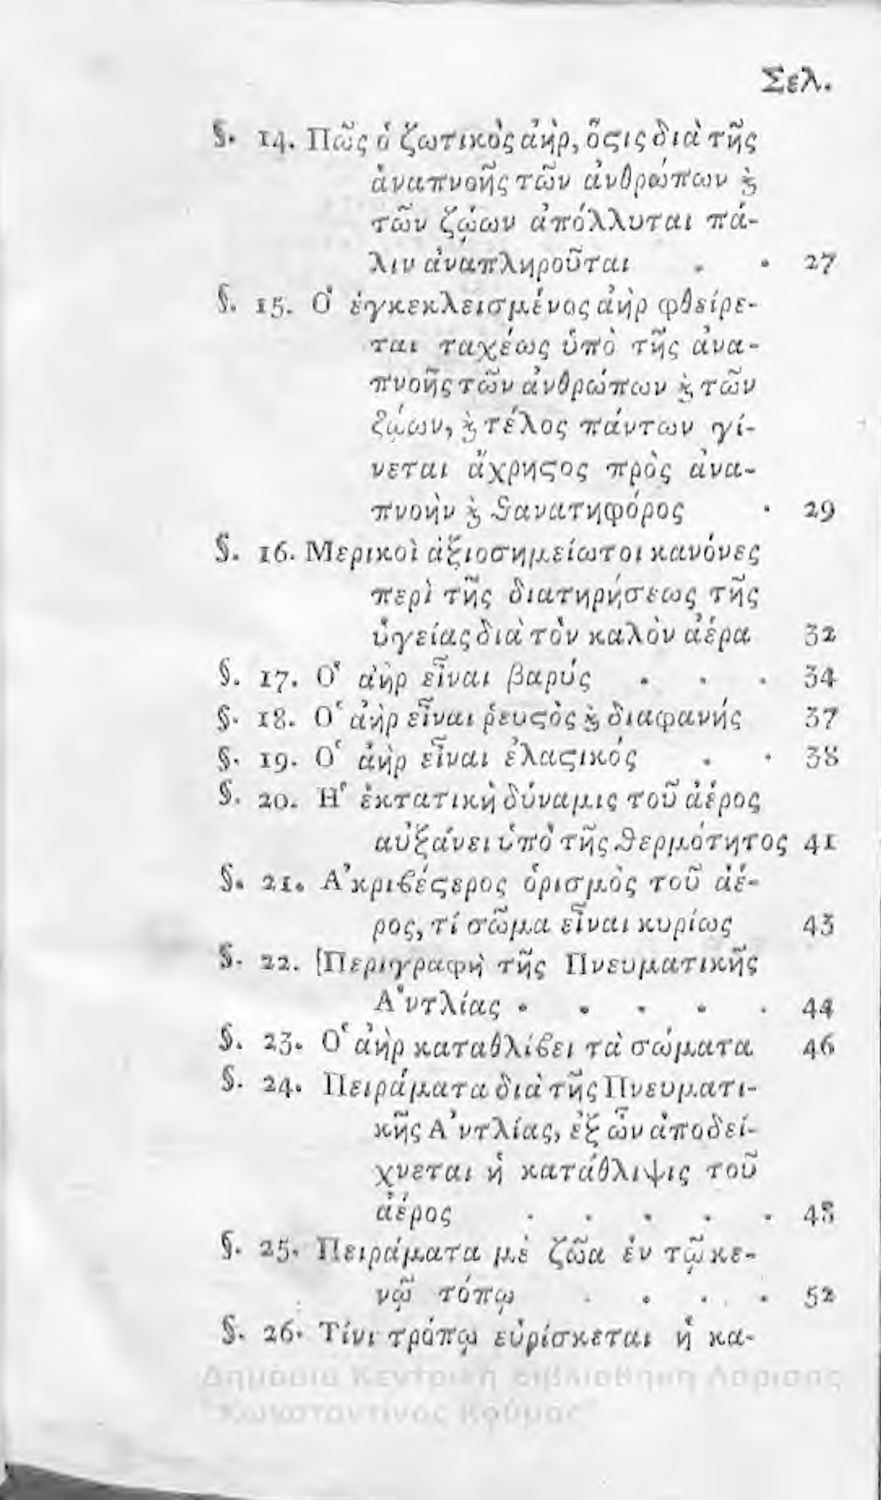 Σελ.
§. 14. Πῶς ὁ ζωτικὸς ἀὴρ, ὅςις διὰ τῆς
ἀναπνοῆς τῶν ἀνθρώπων ϗ
τῶν ζώων ἀπόλλυται πά-
λιν ἀναπληροῦται . . 27
§. 15. Ὁ ἐγκεκλεισμένος ἀὴρ φθείρε-
ται ταχέως ὑπὸ τῆς ἀνα-
πνοῆς τῶν ἀνθρώπων ϗ τῶν
ζώων, ϗ τέλος πάντων γί-
νεται ἄχρηςος πρὸς ἀνα-
πνοὴν ϗ θανατηφόρος . 29
§. 16. Μερικοὶ ἀξιοσημείωτοι κανόνες
περὶ τῆς διατηρήσεως τῆς
ὑγείας διὰ τὸν καλὸν ἀέρα 32
§. 17. Ὁ ἀὴρ εἶναι βαρύς . . . 34
§. 18. Ὁ ἀὴρ εἶναι ῥευςὸς ϗ διαφανής 37
§. 19. Ὁ ἀὴρ εἶναι ἐλαςικός . . 38
§. 20. Ἡ ἐκτατικὴ δύναμις τοῦ ἀέρος
αὐξάνει ὑπὸ τῆς θερμότητος 41
§. 21. Ἀκριβέςερος ὁρισμὸς τοῦ ἀέ-
ρος, τί σῶμα εἶναι κυρίως 43
§. 22. Περιγραφὴ τῆς Πνευματικῆς
Ἀντλίας . . . . . 44
§. 23. Ὁ ἀὴρ καταθλίβει τὰ σώματα 46
§. 24. Πειράματα διὰ τῆς Πνευματι-
κῆς Ἀντλίας, ἐξ ὧν ἀποδεί-
χνεται ἡ κατάθλιψις τοῦ
ἀέρος . . . . . 48
§. 25. Πειράματα μὲ ζῶα ἐν τῷ κε-
νῷ τόπῳ . . . . 52
§. 26. Τίνι τρόπῳ εὑρίσκεται ἡ κα-
Δημόσια Κεντρική Βιβλιοθήκη Λάρισας
"Κωνσταντίνος Κούμας"